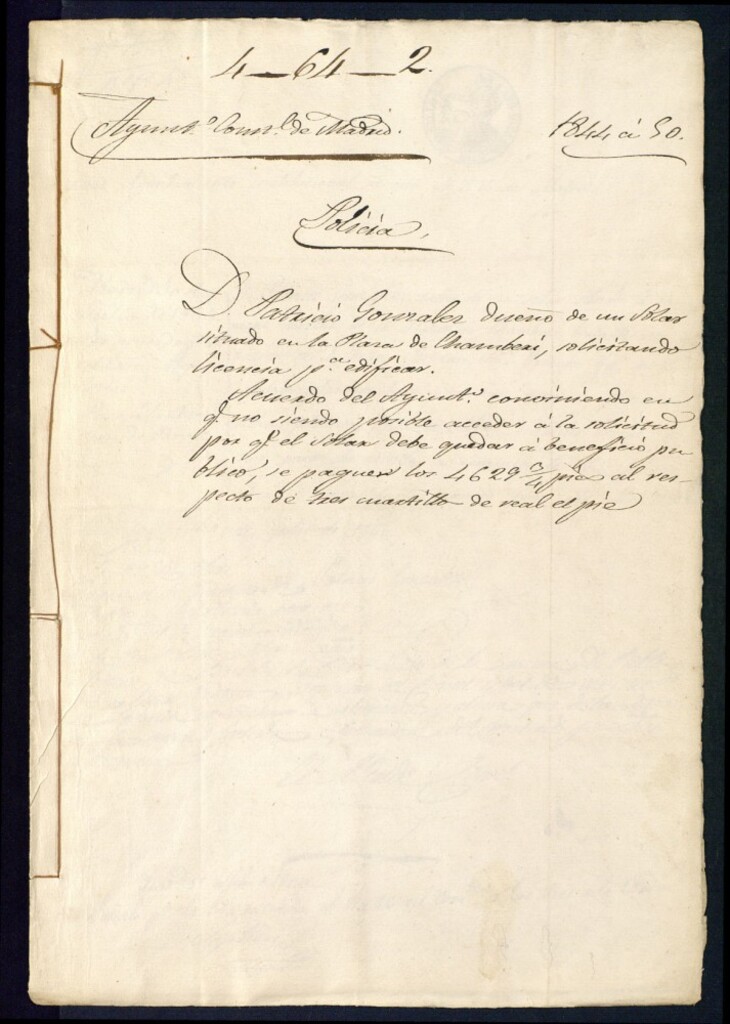 4-64-2.
Ayunt.º Const.l de Madrid.
1844 á 50.
Policia,
D. Patricio Gonzalez dueño de un Solar
situado en la Plaza de Chamberí, solicitando
licencia p.a edificar.
Acuerdo del Ayunt.º conviniendo en
q.e no siendo posible acceder á la solicitud
por q.e el Solar debe quedar á beneficio pu
blico, se paguen los 4629 3/4 pies al res-
pecto de tres cuartillo de real el pie